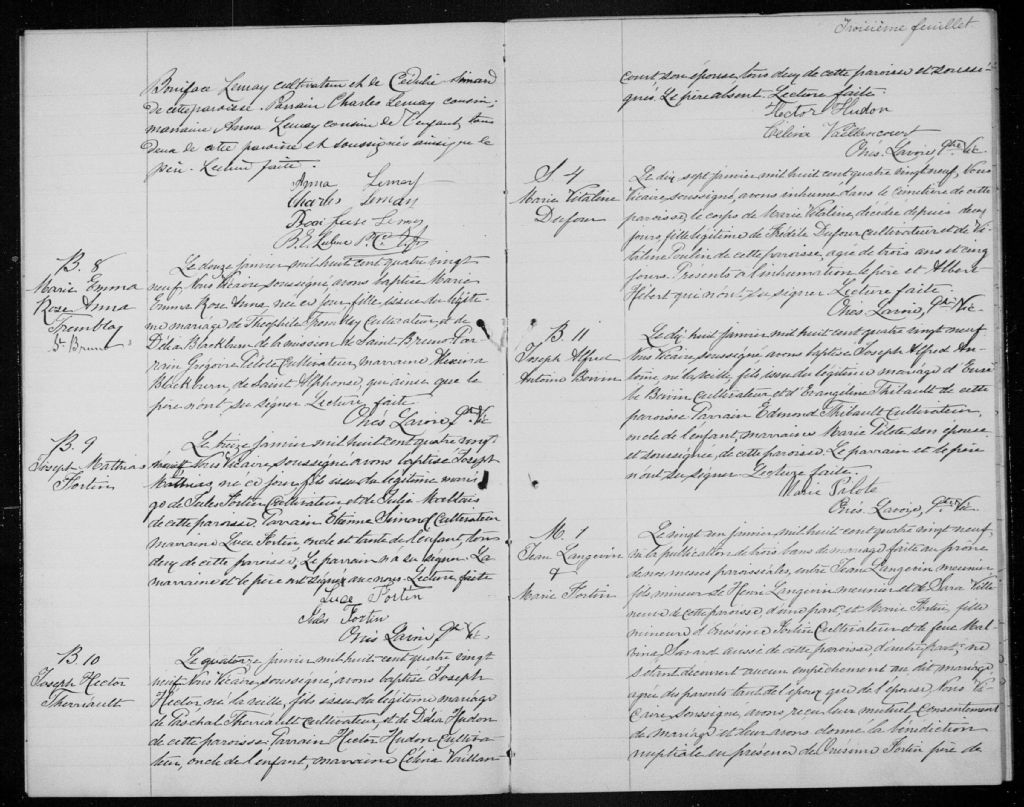 Boniface Lemay cultivateur et de Cédulie Simard
de cette paroisse. Parrain Charles Lemay cousin,
marraine Anna Lemay cousine de l'enfant, tous
deux de cette paroisse et soussignés ainsi que le
père. Lecture faite.
Anna Lemay
Charles Lemay
Boniface Lemay
B. 8
Marie Emma
Rose Anna
Tremblay
St Bruno
Le douze janvier mil huit cent quatre vingt
neuf Nous Vicaire soussigné avons baptisé Marie
Emma Rose Anna, née ce jour fille issue du légiti-
me mariage de Théophile Tremblay Cultivateur et de
Délia Blackburn de la mission de Saint-Bruno. Par-
rain Grégoire Pilote Cultivateur, marraine
Blackburn, de Saint Alphonse, qui ainsi que le
père n'ont su signer Lecture faite
Onés. Lavoie, Ptre Vic.
B. 9
Joseph Mathias
Fortin
Le treize janvier mil huit cent quatre vingt
neuf Nous Vicaire soussigné avons baptisé Joseph
Mathias né ce jour fils issu du légitime maria-
ge de Jules Fortin Cultivateur et de Julie Maltais
de cette paroisse, Parrain Etienne Simard Cultivateur
marraine Luce Fortin, oncle et tante de l'enfant, tous
deux de cette paroisse, Le parrain n'a su signer La
marraine et le père ont signé avec nous. Lecture faite
Luce Fortin
Jules Fortin
Onés. Lavoie, Ptre Vic.
B 10
Joseph Hector
Therriault
Le quatorze janvier mil huit cent quatre vingt
neuf Nous Vicaire soussigné, avons baptisé Joseph
Hector né la veille, fils issu du légitime mariage
de Paschal Therriault cultivateur, et de Délia Hudon
de cette paroisse Parrain Hector Hudon cultiva-
teur, oncle de l'enfant, marraine Célina Vaillan-
Troisième feuillet
court son épouse, tous deux de cette paroisse et soussi-
gnés. Le père absent. Lecture faite.
Hector Hudon
Célina Vaillancourt
Onés. Lavoie, Ptre Vic.
S 4
Marie Vitaline
Dufour
Le dix sept janvier mil huit cent quatre vingt neuf, Nous
Vicaire, soussigné, avons inhumé dans le cimetière de cette
paroisse, le corps de Marie Vitaline, décédée depuis deux
jours, fille légitime de Fidèle Dufour cultivateur et de Vi-
taline Poulin de cette paroisse, agée de trois ans et cinq
jours. Présents à l'inhumation le père et Albert
Hébert qui n'ont su signer Lecture faite.
Onés. Lavoie, Ptre Vic.
B. 11
Joseph Alfred
Antoine Boivin
Le dix huit janvier mil huit cent quatre vingt neuf
Nous Vicaire soussigné avons baptisé Joseph Alfred An-
toine, né la veille, fils issu du légitime mariage d'
Boivin Cultivateur et d'Evangéline Thibault de cette
paroisse Parrain Edmond Thibault Cultivateur,
oncle de l'enfant, marraine Marie Pilote son épouse
et soussignée, de cette paroisse. Le parrain et le père
n'ont su signer Lecture faite.
Marie Pilote
Onés. Lavoie, Ptre Vic.
M. 1
Jean Langevin
&
Marie Fortin
Le vingt un janvier mil huit cent quatre vingt neuf
vu la publication de trois bans de mariage faite au prône
de nos messes paroissiales, entre Jean Langevin meunier
fils mineur de Henri Langevin meunier et de Sara Ville-
neuve de cette paroisse, d'une part; et Marie Fortin, fille
mineure d'Onésime Fortin Cultivateur et de feue Mal-
vina Savard aussi de cette paroisse, d'autre part; ne
s'étant découvert aucun empêchement au dit mariage
agréé des parents tant de l'époux que de l'épouse, Nous Vi-
caire soussigné, avons reçu leur mutuel consentement
de mariage et leur avons donné la bénédiction
nuptiale en présence de Onésime Fortin père de